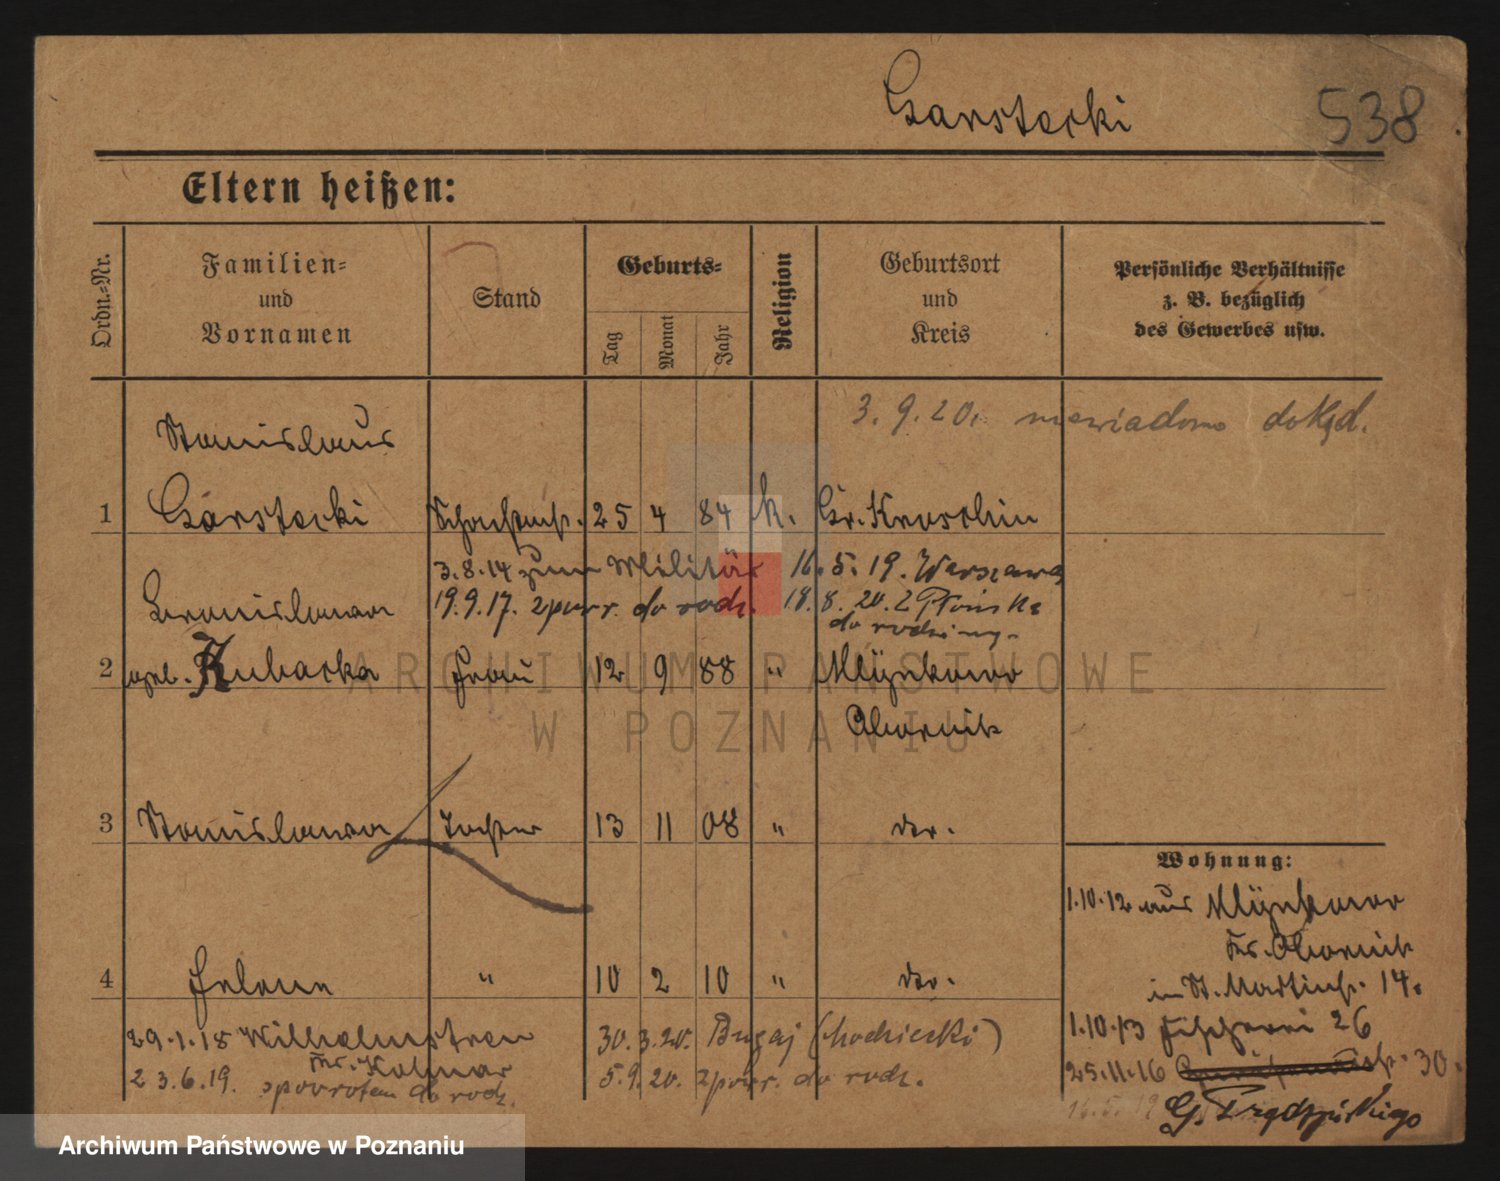 Garstecki 538
Eltern heißen:
Ordn.=Nr.
Familien=
und
Vornamen
Stand
Geburts=
Tag
Monat
Jahr
Religion
Geburtsort
und
Kreis
Persönliche Verhältnisse
z. B. bezüglich
des Gewerbes usw.
3. 9. 20. niewiadomo dokąd.
Stanislaus
1 Garstecki 25 4 84 k. Gr. Kroschin
3.8.14 zum Militär 16. 5. 19. Warszawa
19.9.17. zpowr. do rodz. 18. 8. 20. z Płońska
do rodziny.
Bronislawa
2 geb. Kubacka Frau 12 9 88 " Mlynkowo
Obornik
3 Stanislawa Tochter 13 11 08 " do.
Wohnung:
1.10.12 aus Mlynkowo
Kr. Obornik
in St. Martinstr. 14.
4 Helene " 10 2 10 " do.
1.10.13 Fischerei 26
29.1.18 Wilhelmstreu 30.3.20. Bugaj (Chodzieski)
Kr. Kolmar
25.11.16 30.
23.6.19. zpowrotem do rodz. 5.9.20. zpowr. do rodz.
16.5.19 G.
ARCHIWUM PAŃSTWOWE
W POZNANIU
Archiwum Państwowe w Poznaniu